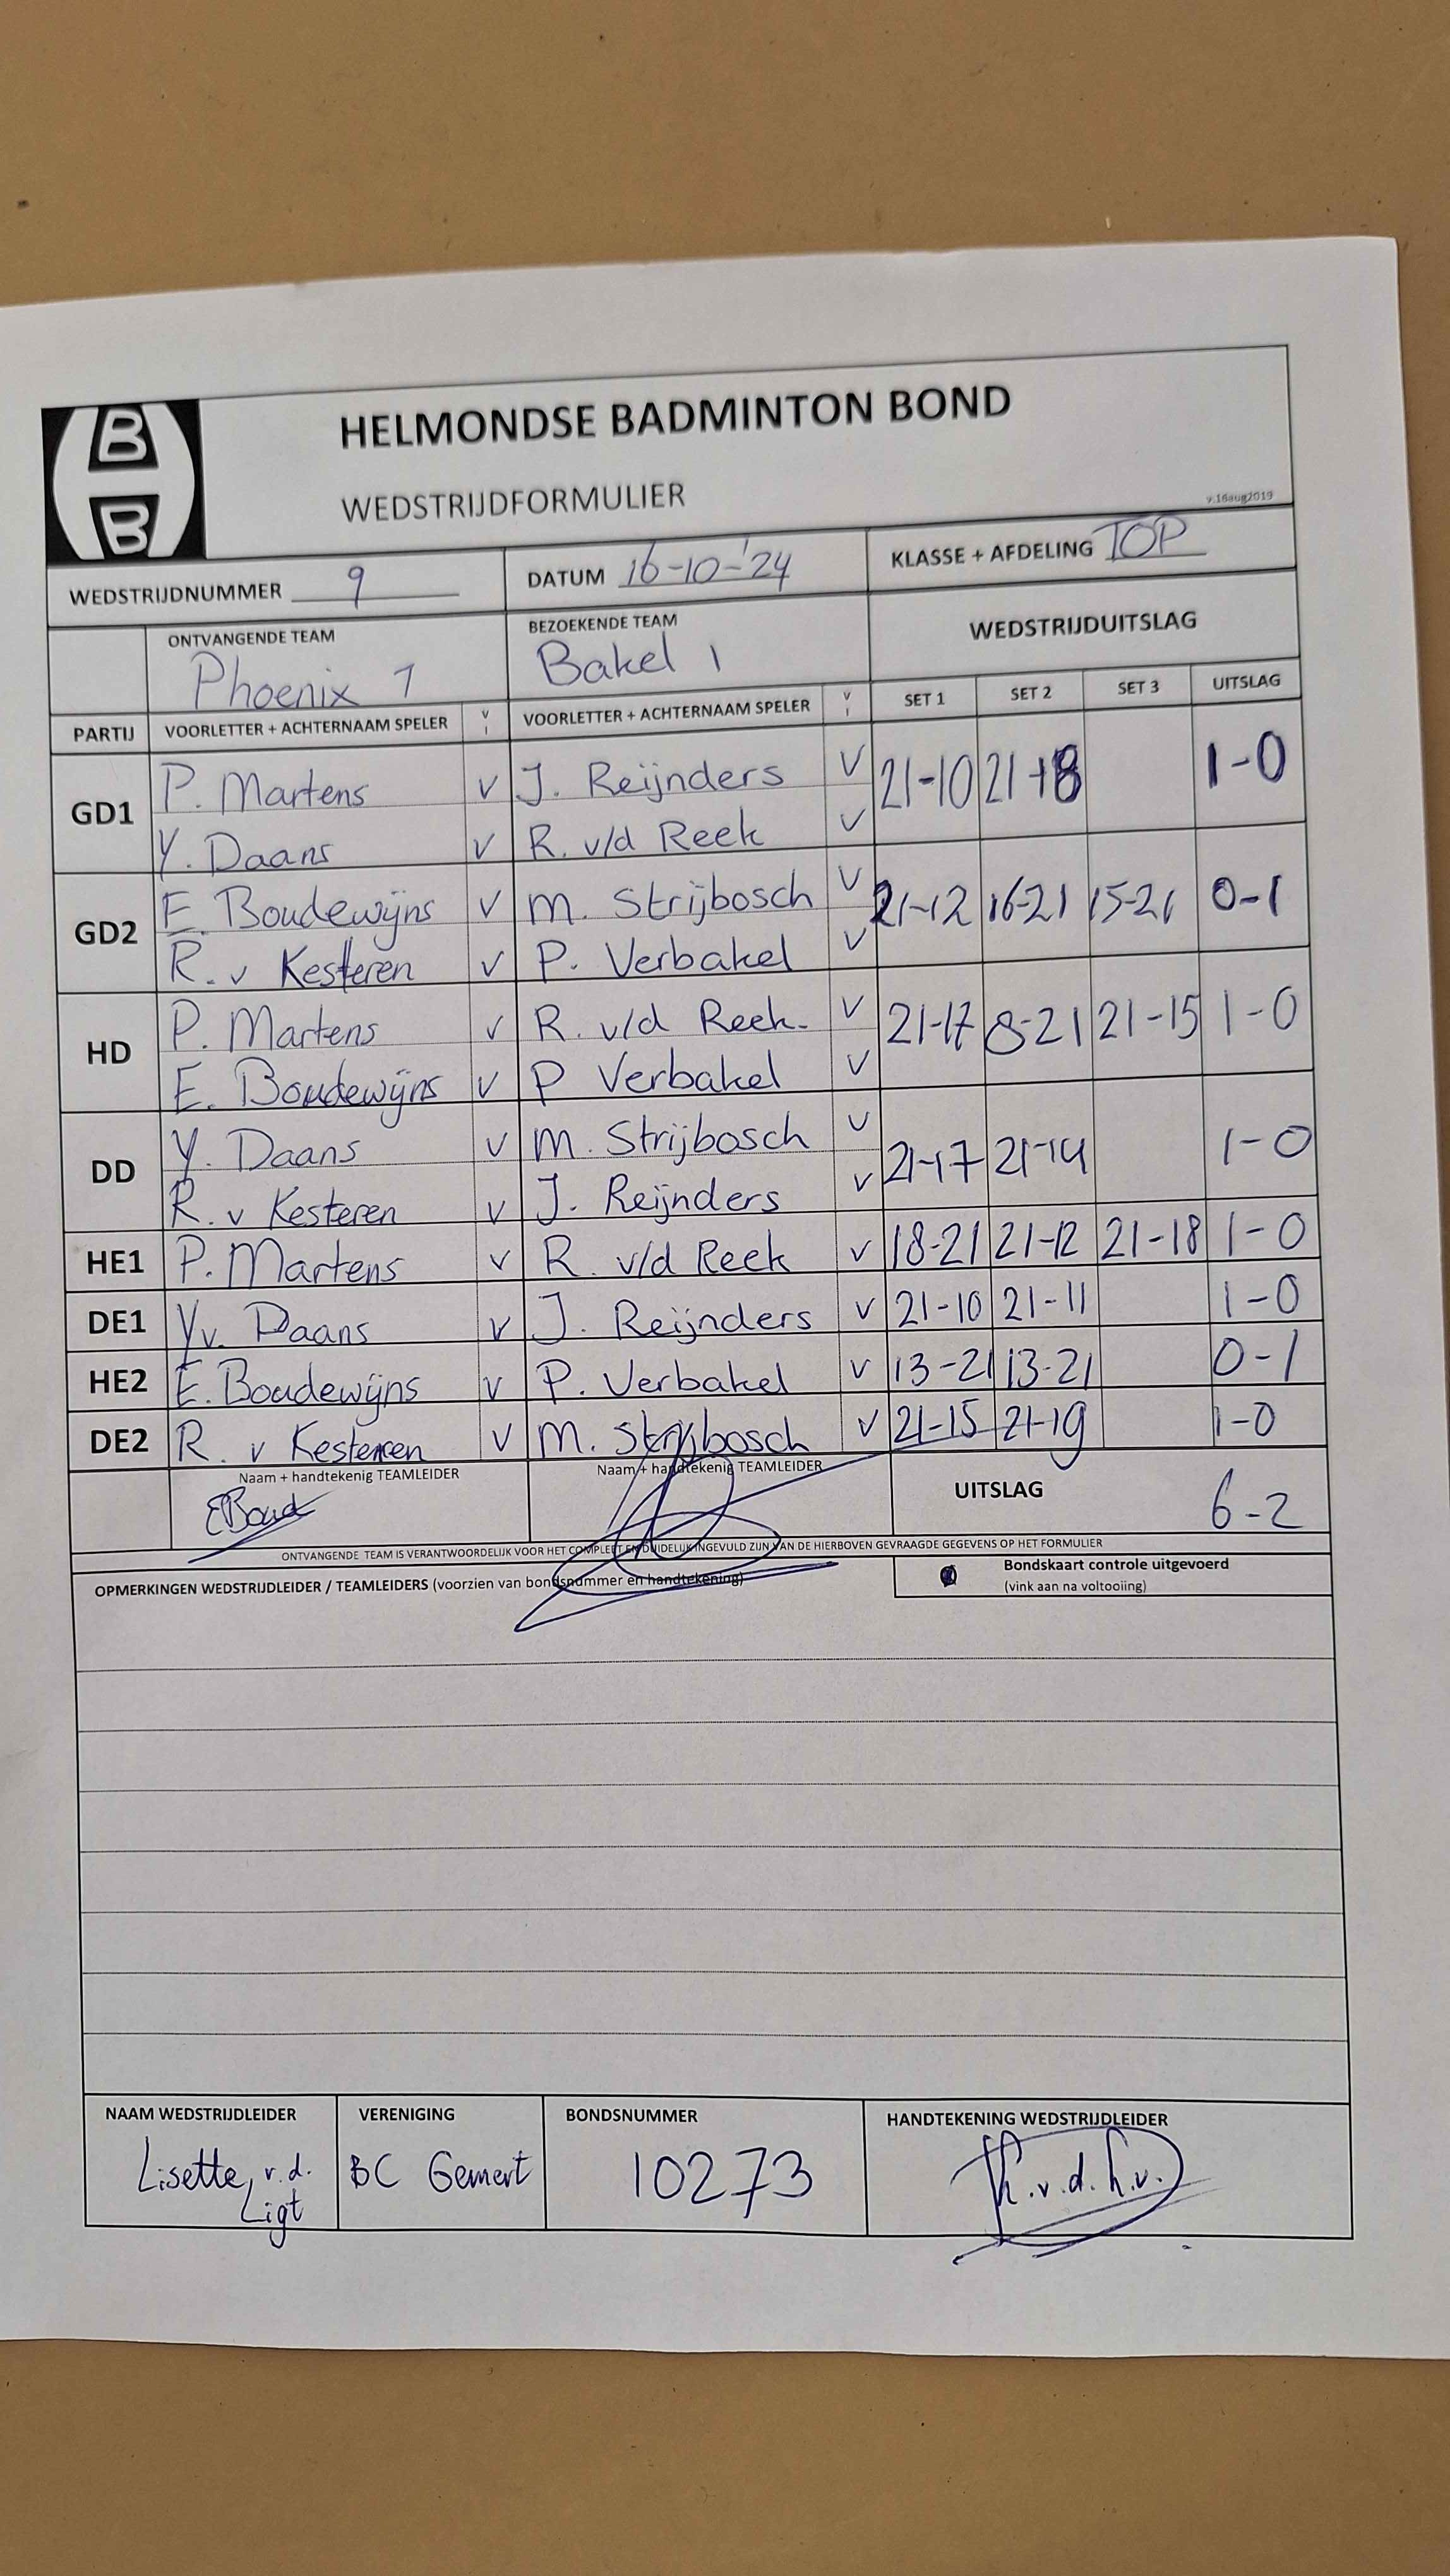 B
B
HELMONDSE BADMINTON BOND
WEDSTRIJDFORMULIER
v.16aug2019
WEDSTRIJDNUMMER 9 DATUM 16-10-'24 KLASSE + AFDELING TOP
ONTVANGENDE TEAM BEZOEKENDE TEAM WEDSTRIJDUITSLAG
Phoenix 1 Bakel 1
PARTIJ VOORLETTER + ACHTERNAAM SPELER V I VOORLETTER + ACHTERNAAM SPELER V I SET 1 SET 2 SET 3 UITSLAG
GD1 P. Martens V J. Reijnders V 21-10 21-18 1-0
Y. Daans V R. v/d Reek V
GD2 E. Boudewijns V M. Strijbosch V 21-12 16-21 15-21 0-1
R. v Kesteren V P. Verbakel V
HD P. Martens V R. v/d Reek. V 21-17 8-21 21-15 1-0
E. Boudewijns V P Verbakel V
DD Y. Daans V M. Strijbosch V 21-17 21-14 1-0
R. v Kesteren V J. Reijnders V
HE1 P. Martens V R. v/d Reek V 18-21 21-12 21-18 1-0
DE1 Yv. Daans V J. Reijnders V 21-10 21-11 1-0
HE2 E. Boudewijns V P. Verbakel V 13-21 13-21 0-1
DE2 R. v Kesteren V M. Strijbosch V 21-15 21-19 1-0
Naam + handtekenig TEAMLEIDER Naam + handtekenig TEAMLEIDER UITSLAG 6-2
EBoud
ONTVANGENDE TEAM IS VERANTWOORDELIJK VOOR HET COMPLEET EN DUIDELIJK INGEVULD ZIJN VAN DE HIERBOVEN GEVRAAGDE GEGEVENS OP HET FORMULIER
OPMERKINGEN WEDSTRIJDLEIDER / TEAMLEIDERS (voorzien van bondsnummer en handtekening) Bondskaart controle uitgevoerd
(vink aan na voltooiing)
NAAM WEDSTRIJDLEIDER VERENIGING BONDSNUMMER HANDTEKENING WEDSTRIJDLEIDER
Lisette v.d. BC Gemert 10273
Ligt